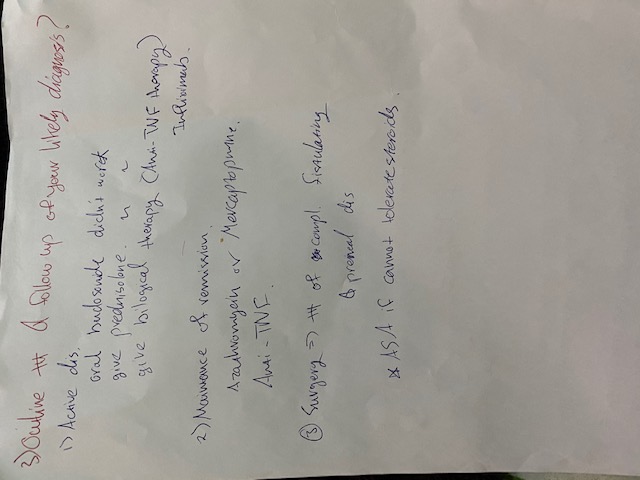 3) Outline ttt & follow up of your likely diagnosis?
1) Active dis.
oral budosonide didn't work
give prednisolone. " "
give bilogical therapy (Anti-TNF therapy)
Infliximab.
2) of remission.
or Mercaptopurine.
Anti-TNF.
③ Surgery => ttt of compl. Fistulating
& dis
* ASA if cannot tolerate steroids.